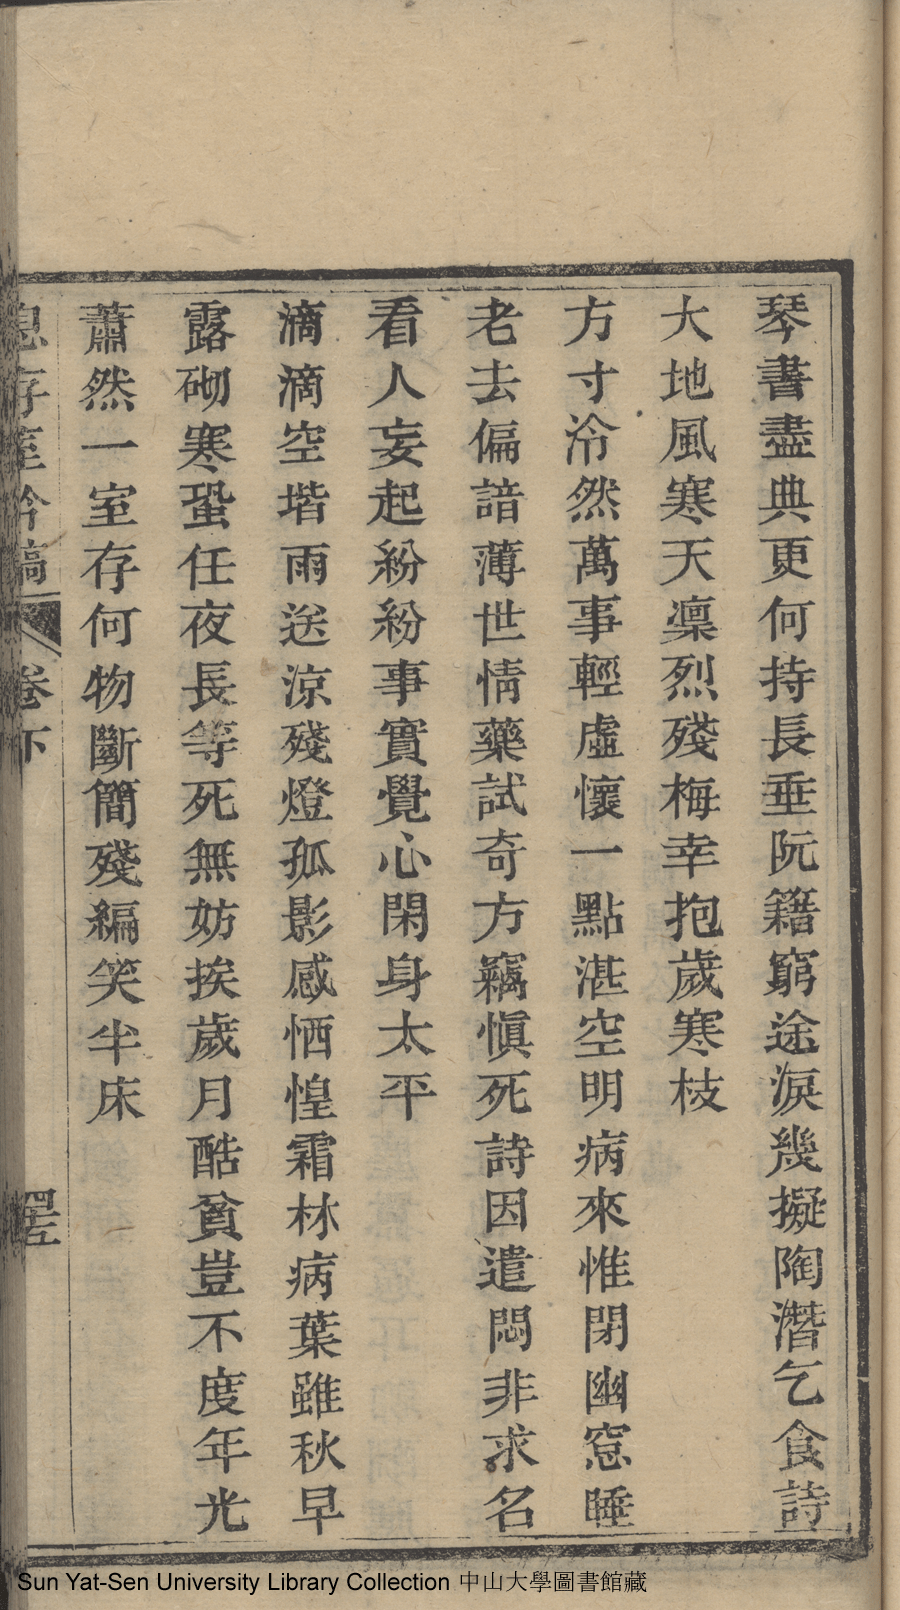 琴書盡典更何持長垂阮籍窮途淚幾擬陶潛乞食詩
大地風寒天凜烈殘梅幸抱歲寒枝
方寸冷然萬事輕虛懷一點湛空明病來惟閉幽窓睡
老去偏諳薄世情藥試奇方竊愼死詩因遣悶非求名
看人妄起紛紛事實覺心閑身太平
滴滴空堦雨送涼殘燈孤影感恓惶霜林病葉雖秋早
露砌寒蛩任夜長等死無妨挨歲月酷貧豈不度年光
蕭然一室存何物斷簡殘編笑半床
息存室吟稿 卷下
Sun Yat-Sen University Library Collection 中山大學圖書館藏